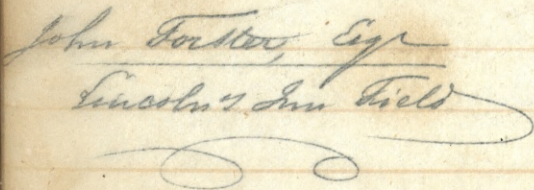 John Forster, Esqr
Lincoln's Inn Field